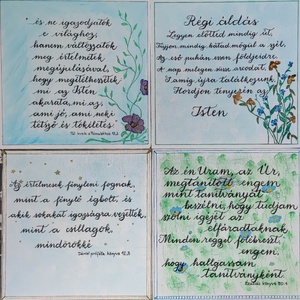 és ne igazodjatok
e világhoz,
hanem változzatok
meg értelmetek
megújulásával,
hogy megítélhessétek
mi az Isten
akarata, mi az,
ami jó, ami neki
tetsző és tökéletes.
Régi áldás
Legyen előtted mindig út,
Fújjon mindig hátad mögül a szél,
Az eső puhán essen földjeidre,
A nap melegen süsse arcodat,
S amíg újra találkozunk
Hordjon tenyerén az
Isten
Az értelmesek fényleni fognak,
mint a fénylő égbolt, és
akik sokakat igazságra vezettek,
mint a csillagok,
mindörökké
Dániel próféta könyve 12,3
Az én Uram, az Úr,
megtanított engem
mint tanítványát
beszélni, hogy tudjam
szólni igéjét az
elfáradtaknak
Minden reggel fölébreszt
engem,
hogy hallgassam
tanítványként
Ézsaiás könyve 50,4